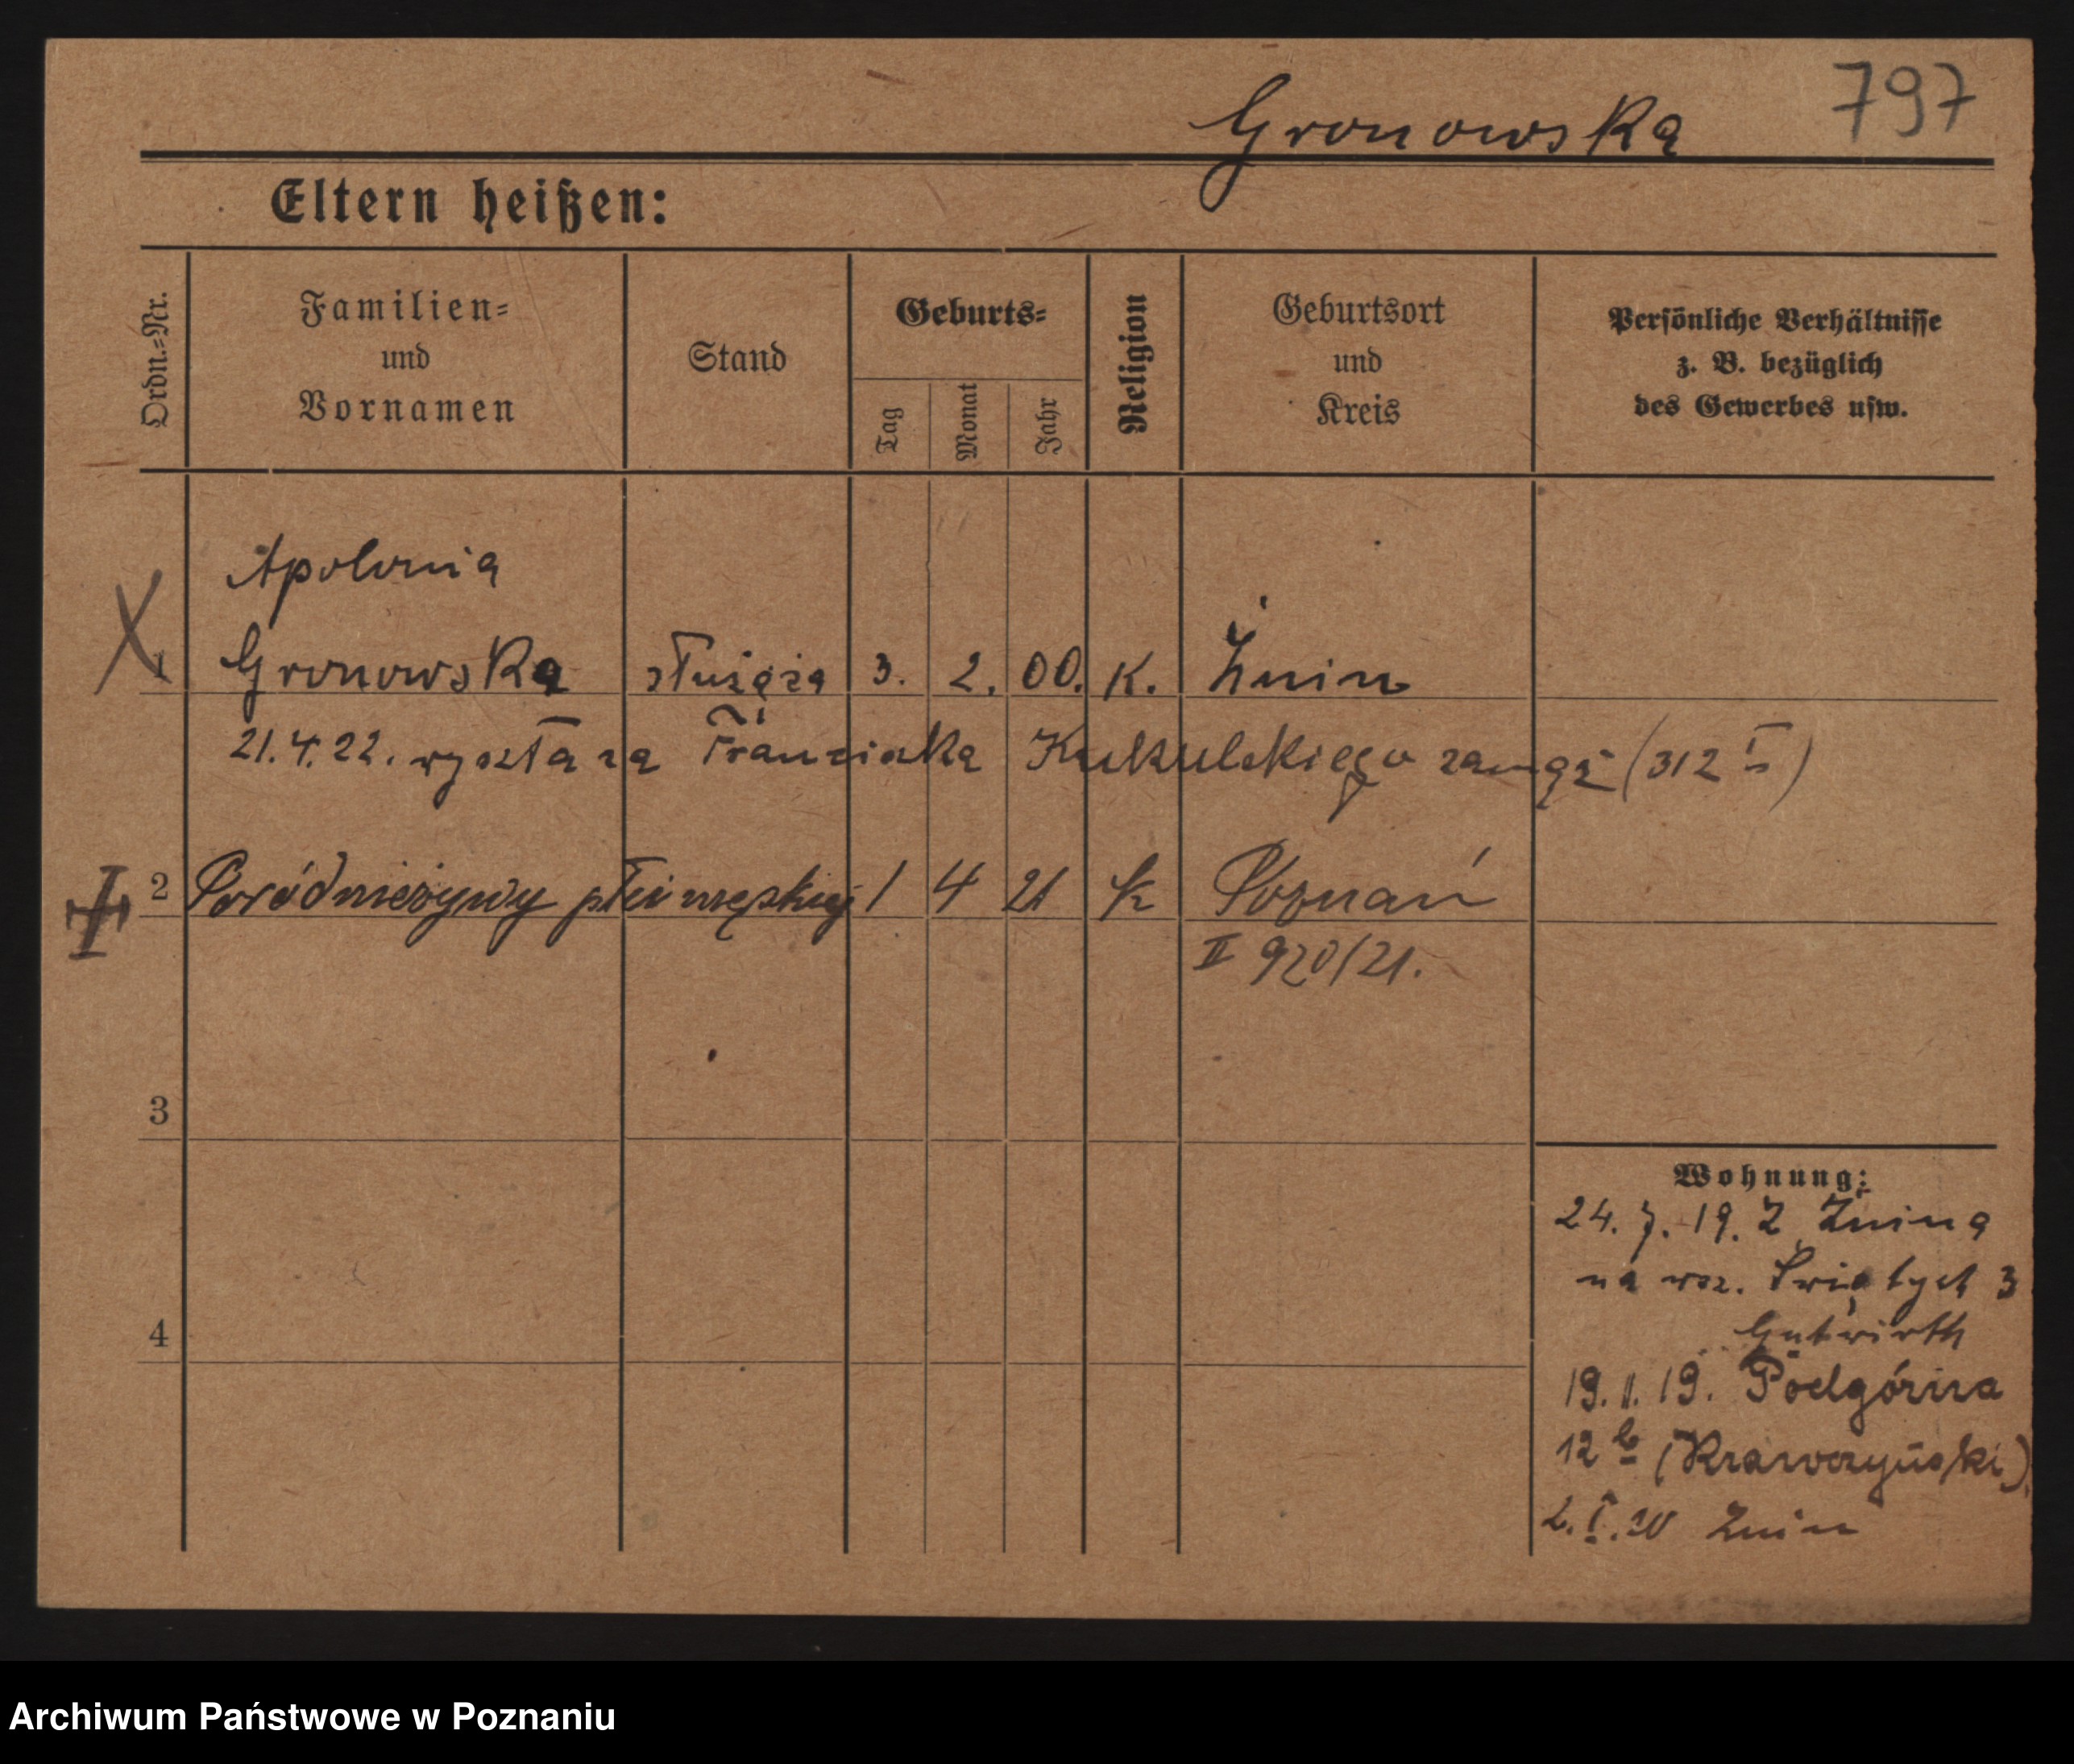 797
Gronowska
Eltern heißen:
Ordn.=Nr.
Familien=
und
Vornamen
Stand
Geburts=
Tag
Monat
Jahr
Religion
Geburtsort
und
Kreis
Persönliche Verhältnisse
z. B. bezüglich
des Gewerbes usw.
Apolonia
1 Gronowska służąca 3. 2. 00. K. Żnin
21.4.22. wyszła za Franciszka Kukulskiego zamąż (312 I)
2 Poród nieżywy płci męskiej 1 4 21 k Poznań
II 920/21.
3
4
Wohnung:
24. 7. 19. Z Żnina
na wsz. Świętych 3
Gutwirth
19. II. 19. Podgórna
12 b (Krawczyński)
2. I. 20 Żnin
Archiwum Państwowe w Poznaniu